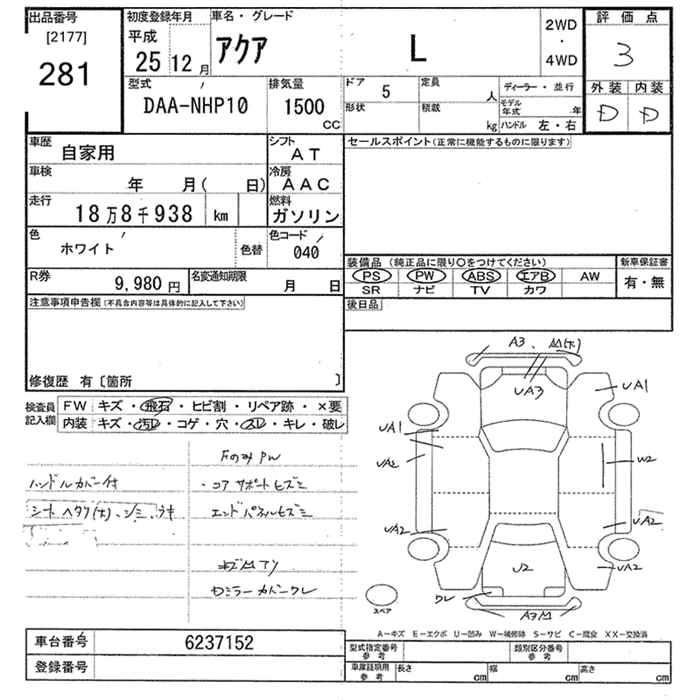 出品番号 初度登録年月 車名・グレード 評価点
[2177] 平成 アクア L 2WD ・ 4WD 3
281 25 12月
型式 排気量 ドア 5 定員 人 ディーラー・並行 外装 内装
DAA-NHP10 1500 CC 形状 積載 kg モデル年式 年 D D
ハンドル 左・右
車歴 自家用 シフト AT セールスポイント(正常に機能するものに限ります)
車検 年 月( 日) 冷房 AAC
走行 18万8千938 km 燃料 ガソリン
色 ホワイト 色替 色コード 040
装備品(純正品に限り○をつけてください) 新車保証書
R券 9,980円 名変通知期限 月 日
PS PW ABS エアB AW 有・無
SR ナビ TV カワ
注意事項申告欄(不具合内容等は具体的に記入して下さい) 後日品
修復歴 有〔箇所 〕
検査員記入欄 FW キズ・飛石・ヒビ割・リペア跡・×要
内装 キズ・汚レ・コゲ・穴・スレ・キレ・破レ
FのみPW
ハンドルカバー付 ・コアサポートヒズミ
エンドパネルヒズミ
Dミラーカバーワレ
A3
UA3 UA1
UA1
UA2 W2
UA2 UA2
UA2
U2
ワレ
スペア
A-キズ E-エクボ U-凹み W-補修跡 S-サビ C-腐食 XX-交換済
車台番号 6237152 型式指定番号 参考 類別区分番号 参考
登録番号 車庫証明用 参考 長さ cm 幅 cm 高さ cm